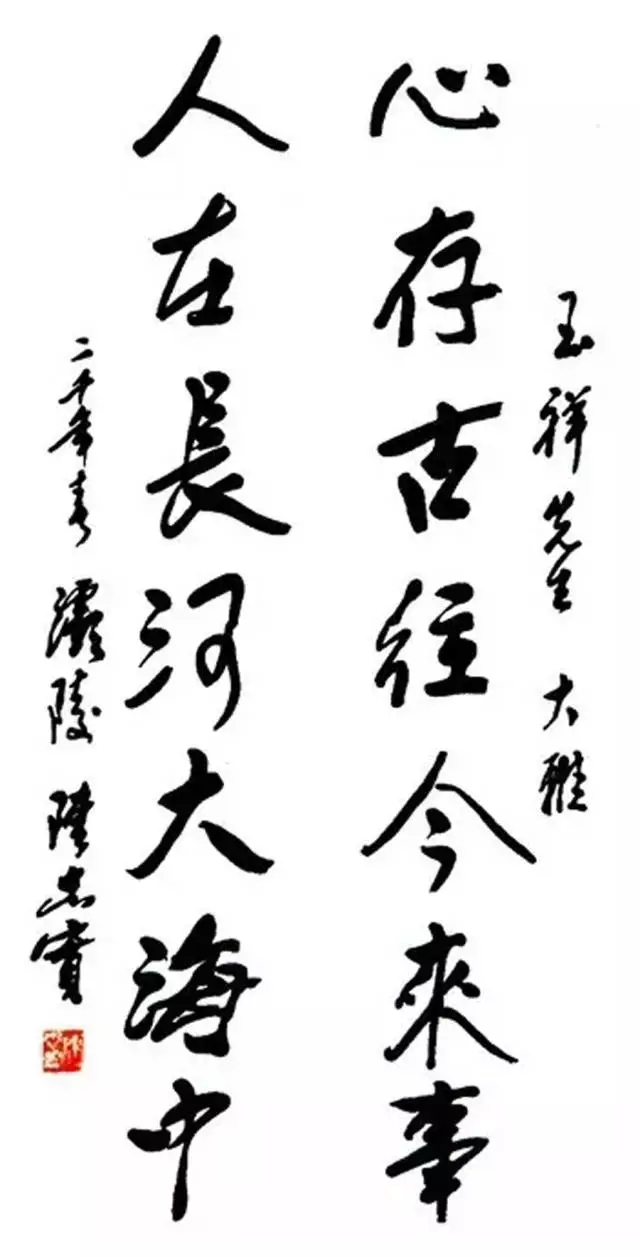 玉祥先生 大雅
心存古往今來事
人在長河大海中
二千年春 灞陵 陳忠實